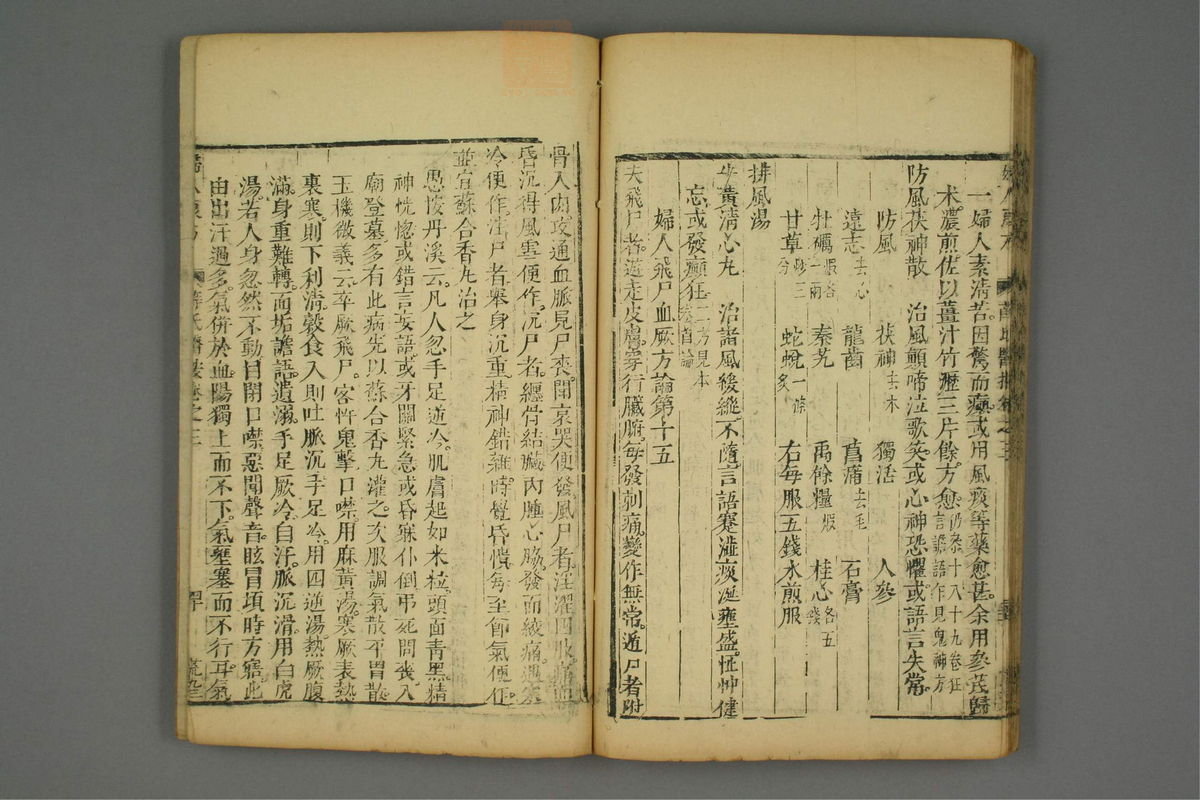 一婦人素清苦因驚而癇或用風痰等藥愈甚余用參芪歸
术濃煎佐以薑汁竹瀝三片餘方愈仍叅十八十九卷狂言譫語作見鬼神方
防風茯神散　治風顛啼泣歌笑或心神恐懼或語言失常
防風　茯神去木　獨活　人參
遠志去心　龍齒　菖蒲去毛　石膏
牡礪煅各一兩　秦艽　禹餘糧煅　桂心各五錢
甘草炒三分　蛇蛻一條炙　右每服五錢水煎服
排風湯
牛黃清心丸　治諸風緩縱不隨言語蹇澁痰涎壅盛怔忡健
忘或發癲狂二方見本卷首論
婦人飛尸血厥方論第十五
夫飛尸者遊走皮膚穿行臟腑每發刺痛變作無常遁尸者附
骨入肉攻通血脈見尸喪聞哀哭便發風尸者淫濯四肢痛
昏沉得風雪便作沉尸者纏骨結臟內腫心脇發而絞痛遇寒
冷便作注尸者舉身沉重精神錯雜時覺昏憒每至節氣便作
並宜蘇合香丸治之
愚按丹溪云凡人忽手足逆冷肌膚起如米粒頭面青黑精
神恍惚或錯言妄語或牙關緊急或昏寐仆倒弔死問喪入
廟登墓多有此病先以蘇合香丸灌之次服調氣散平胃散
玉機微義云卒厥飛尸客忤鬼擊口噤用麻黃湯寒厥表熱
裏寒則下利清穀食入則吐脈沉手足冷用四逆湯熱厥腹
滿身重難轉面垢譫語遺溺手足厥冷自汗脈沉滑用白虎
湯若人身忽然不動目閉口噤惡聞聲音眩冒頃時方寤此
由出汗過多氣併於血陽獨上而不下氣壅塞而不行耳氣